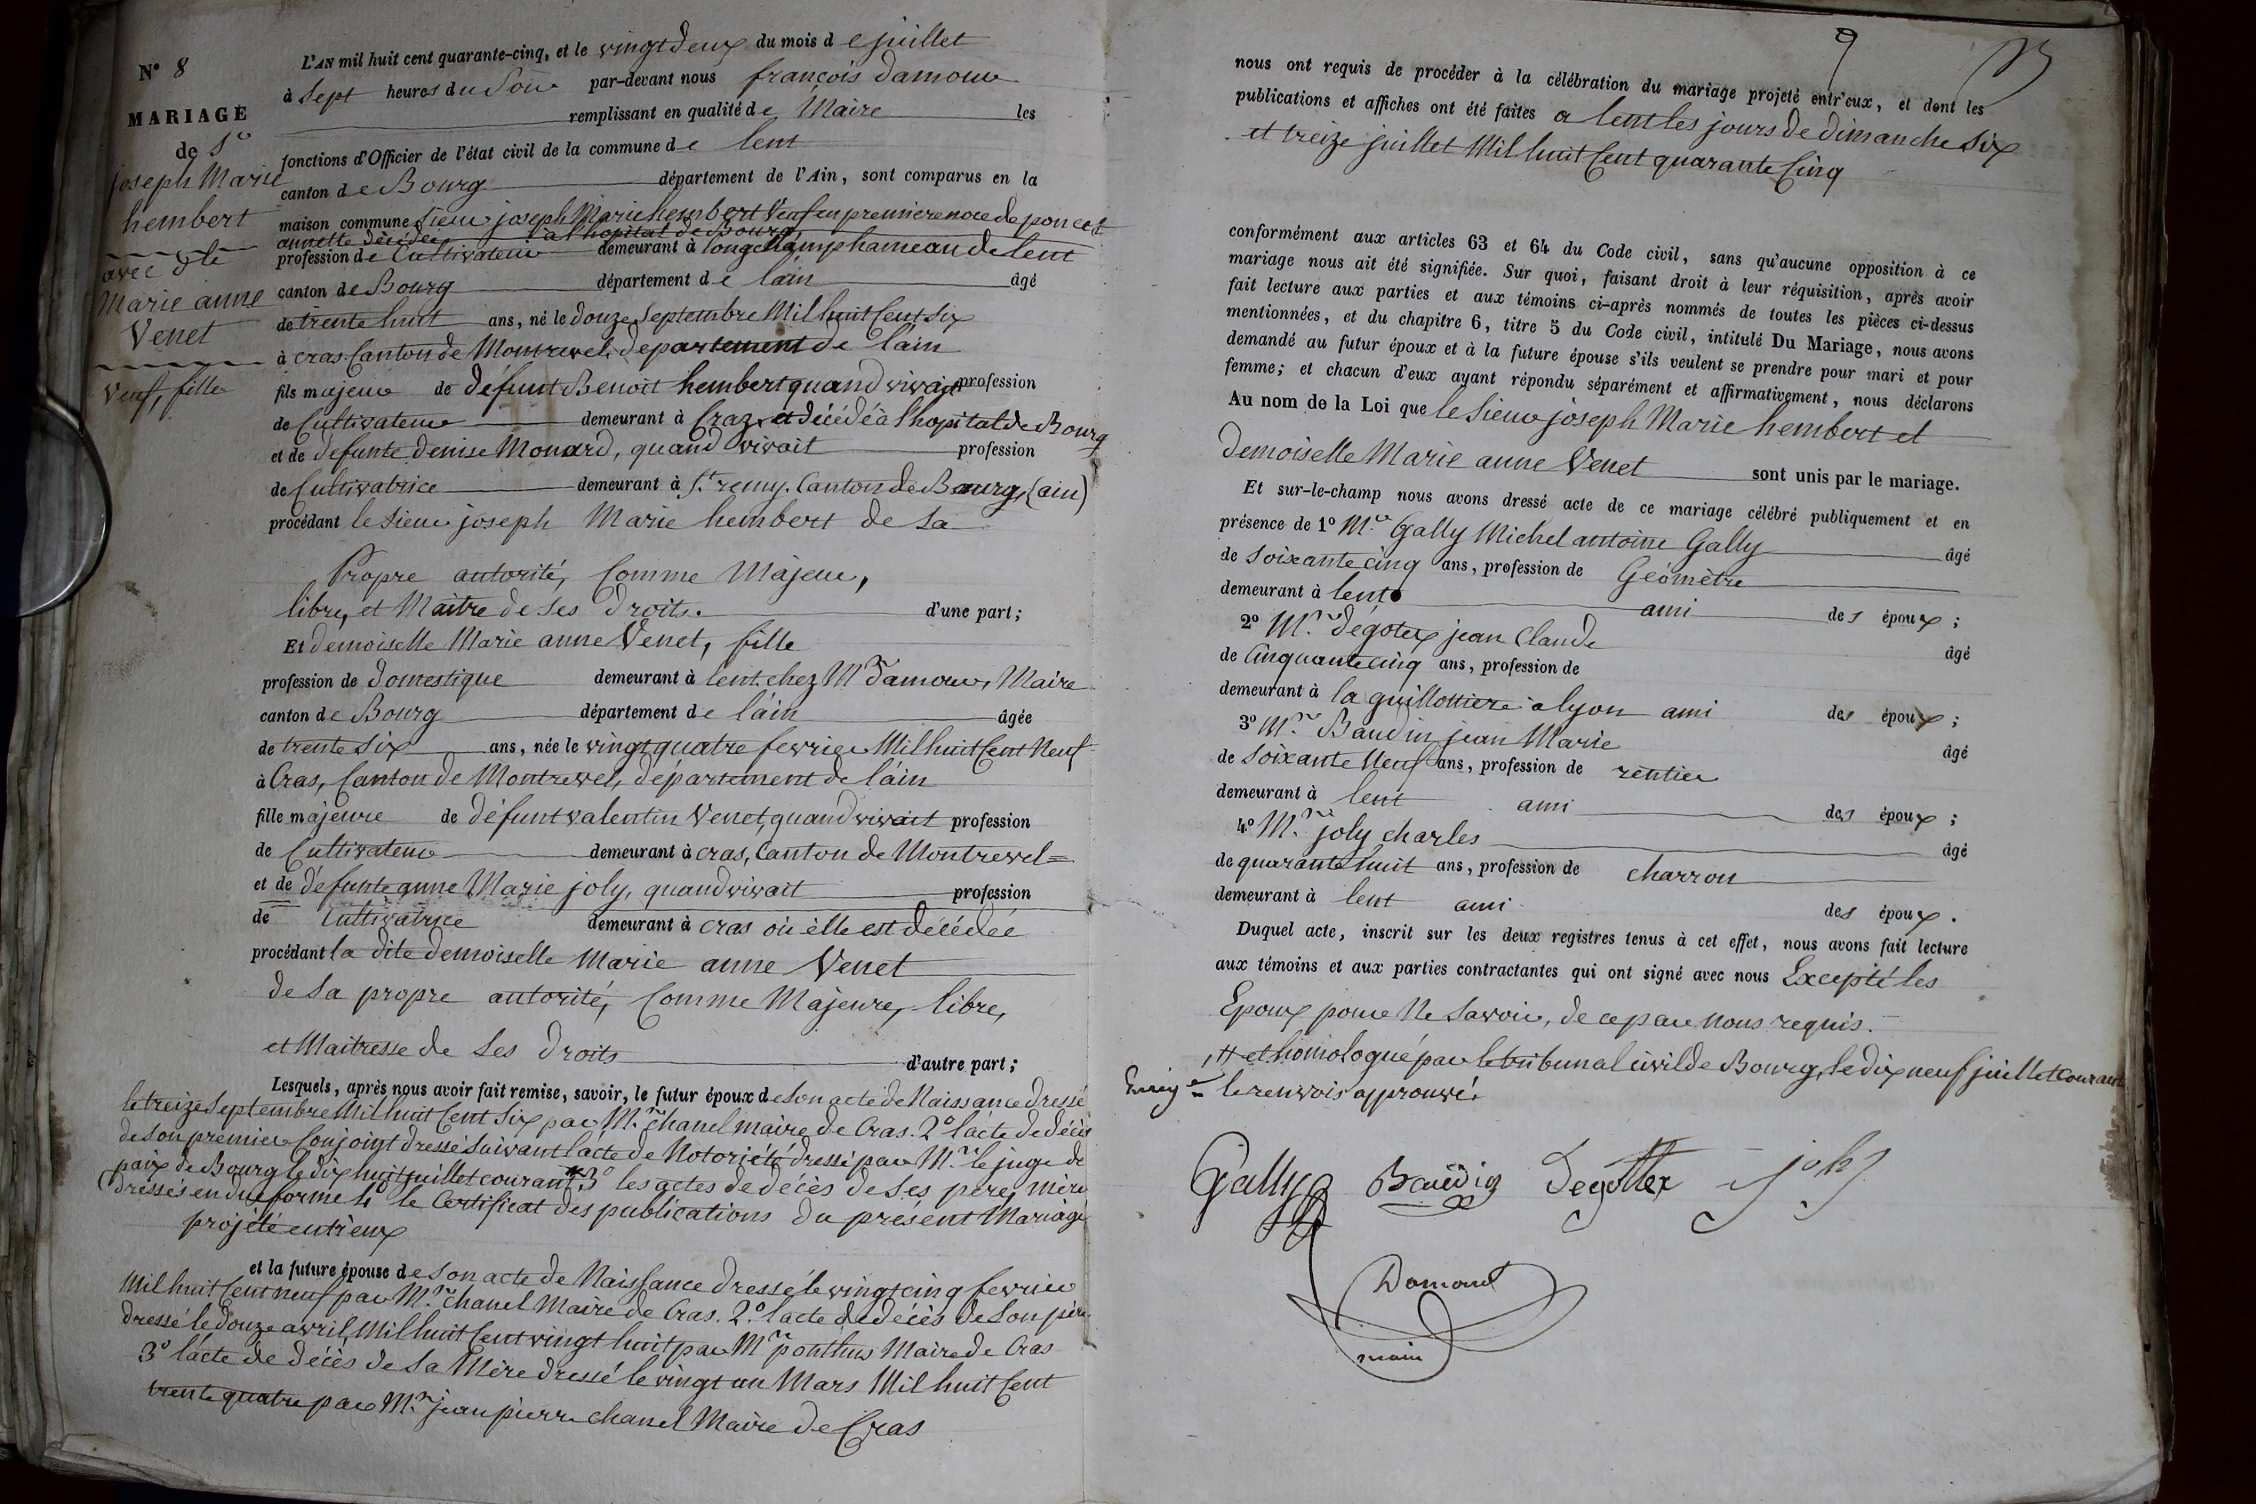 N° 8
MARIAGE
de Sr
joseph Marie
hembert
avec dlle
Marie anne
Venet
Veuf, fille
L'AN mil huit cent quarante-cinq, et le vingt deux du mois de juillet
à Sept heures du Soir par-devant nous françois damour
remplissant en qualité de Maire les
fonctions d'Officier de l'état civil de la commune de lent
canton de Bourg département de l'Ain, sont comparus en la
maison commune Sieur joseph Marie hembert Veuf en premiere noce de poncet
annette décédée à l'hopital de Bourg
profession de Cultivateur demeurant à longchamp hameau de lent
canton de Bourg département de lain âgé
de trente huit ans, né le douze Septembre Mil huit Cent Six
à cras Canton de Montrevel, departement de l'ain
fils majeur de défunt Benoit hembert quand vivait profession
de Cultivateur demeurant à Craz et décédé à l'hopital de Bourg
et de défunte denise Monard, quand vivait profession
de Cultivatrice demeurant à St remy. Canton de Bourg, (ain)
procédant le Sieur joseph Marie hembert de Sa
Propre autorité, Comme Majeur,
libre, et Maître de Ses droits. d'une part;
Et demoiselle Marie anne Venet, fille
profession de domestique demeurant à lent chez Mr damour, Maire
canton de Bourg département de l'ain âgée
de trente Six ans, née le vingt quatre fevrier Mil huit Cent Neuf
à Cras, Canton de Montrevel, département de l'ain
fille majeure de défunt valentin Venet, quand vivait profession
de Cultivateur demeurant à cras, Canton de Montrevel=
et de défunte anne Marie joly, quand vivait profession
de Cultivatrice demeurant à cras où elle est décédée
procédant la dite demoiselle Marie anne Venet
de Sa propre autorité, Comme Majeure, libre,
et Maitresse de Ses droits d'autre part;
Lesquels, après nous avoir fait remise, savoir, le futur époux de Son acte de Naissance dressé
le treize Septembre Mil huit Cent Six par Mr Chanel maire de Cras. 2° l'acte de décès
de Son premier Conjoint dressé Suivant l'acte de Notoriété dressé par Mr le juge de
paix de Bourg le dix huit juillet courant # 3° les actes de décès de Ses père, mère
dressés en due forme 4° le Certificat des publications du présent Mariage
projété entreux
et la future épouse de Son acte de Naissance dressé le vingt cinq fevrier
Mil huit Cent neuf par Mr Chanel Maire de Cras. 2° l'acte de décès de Son père
dressé le douze avril Mil huit Cent vingt huit par Mr ponthus Maire de Cras
3° l'acte de décès de Sa Mère dressé le vingt un Mars Mil huit Cent
trente quatre par Mr jean pierre chanel Maire de Cras
9
nous ont requis de procéder à la célébration du mariage projeté entr'eux, et dont les
publications et affiches ont été faites a lent les jours de dimanche Six
et treize juillet Mil huit Cent quarante Cinq
conformément aux articles 63 et 64 du Code civil, sans qu'aucune opposition à ce
mariage nous ait été signifiée. Sur quoi, faisant droit à leur réquisition, après avoir
fait lecture aux parties et aux témoins ci-après nommés de toutes les pièces ci-dessus
mentionnées, et du chapitre 6, titre 5 du Code civil, intitulé Du Mariage, nous avons
demandé au futur époux et à la future épouse s'ils veulent se prendre pour mari et pour
femme; et chacun d'eux ayant répondu séparément et affirmativement, nous déclarons
Au nom de la Loi que le Sieur joseph Marie hembert et
demoiselle Marie anne Venet sont unis par le mariage.
Et sur-le-champ nous avons dressé acte de ce mariage célébré publiquement et en
présence de 1° Mr Gally Michel antoine Gally âgé
de Soixante cinq ans, profession de Géomètre
demeurant à lent ami des époux;
2° Mr dégotex jean Claude âgé
de Cinquante cinq ans, profession de
demeurant à la guillottiere a lyon ami des époux;
3° Mr Baudin jean Marie âgé
de Soixante Neuf ans, profession de rentier
demeurant à lent ami des époux;
4° Mr joly charles âgé
de quarante huit ans, profession de charron
demeurant à lent ami des époux.
Duquel acte, inscrit sur les deux registres tenus à cet effet, nous avons fait lecture
aux témoins et aux parties contractantes qui ont signé avec nous Excepté les
Epoux pour Ne Savoir, de ce par Nous requis.
# et homologué par le tribunal civil de Bourg, le dix neuf juillet courant
le renvois approuvé.
Gally Baudin Degottex joly
Damour
maire